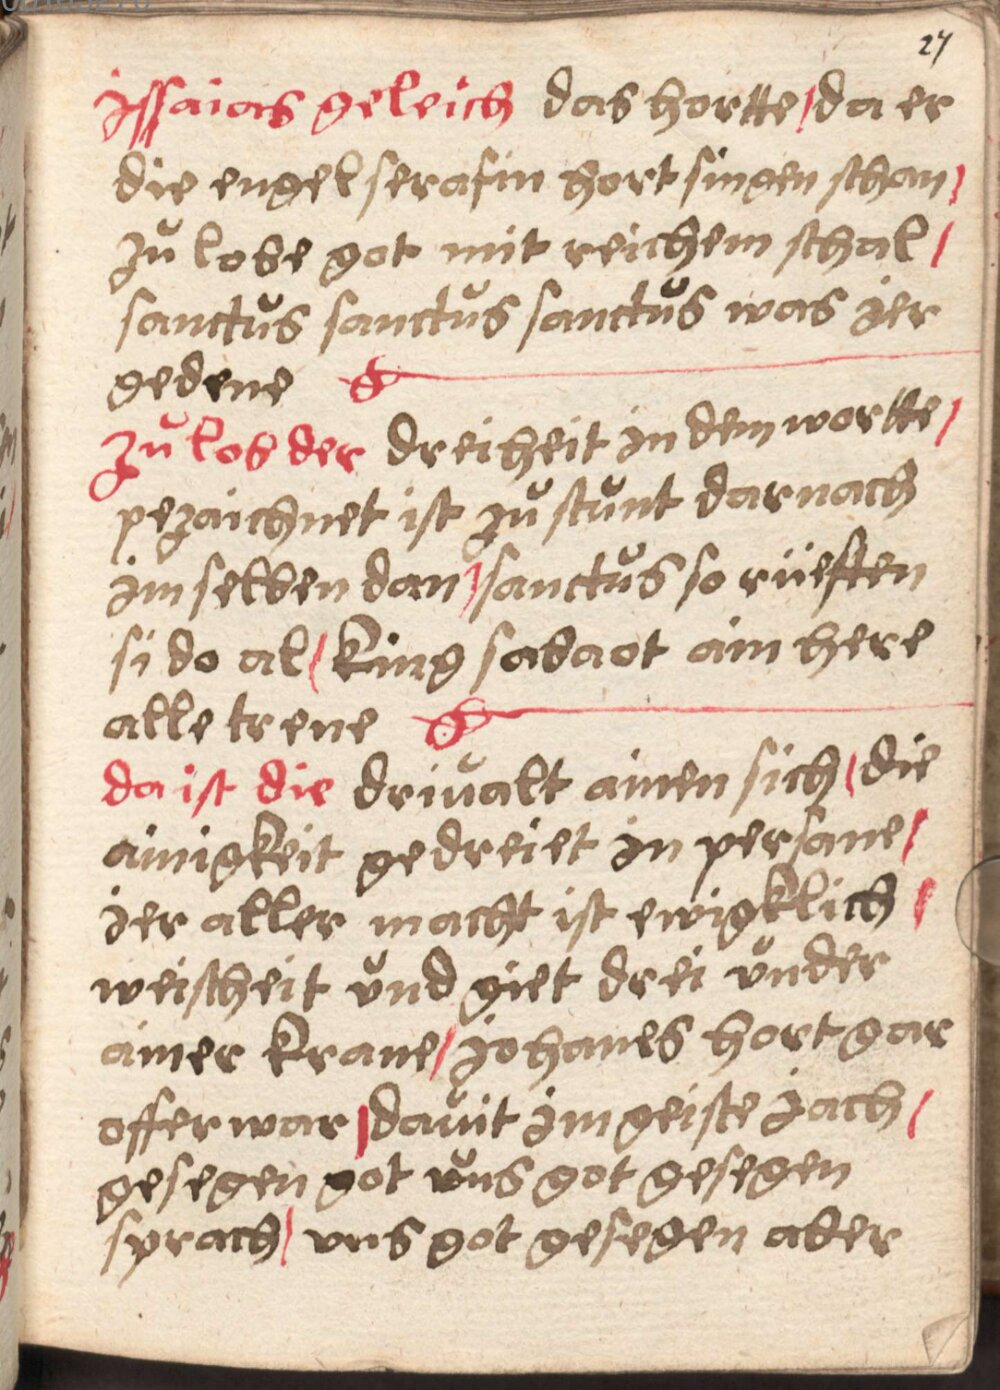 27
jssaias geleich das hortte / da er
die engel serafin hort singen schan /
zů lobe got mit reichem schal /
sanctůs sanctůs sanctůs was jer
gedene
zů lob der dreiheit in dem wortte /
pezaichnet ist zů stůnt darnach
im selben dan / sanctůs so rüeften
si do al / king sabaot ain here
alle trene
da ist die driualt ainen sich / die
ainigkeit gedreiet in persane /
jer aller macht ist ewigklich /
weischeit ůnd giet drei ůnder
ainer krane / johanes hort gar
offerwar / dauit im geiste jach /
gesegen got ůns got gesegen
sprach / vns got gesegen aber